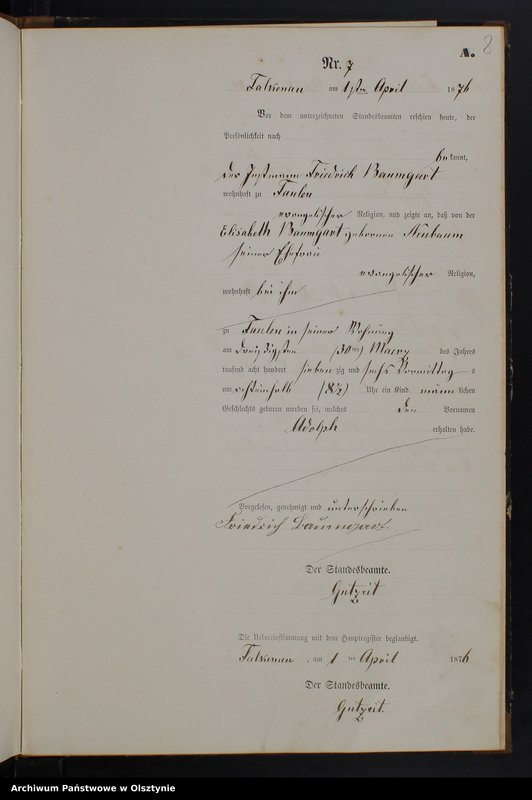 A. 8
Nr. 7
Falkenau am 1ten April 1876
Vor dem unterzeichneten Standesbeamten erschien heute, der
Persönlichkeit nach
bekannt,
der Instmann Friedrich Baumgart
wohnhaft zu Taulen
evangelischer Religion, und zeigte an, daß von der
Elisabeth Baumgart geborenen Neubaum
seiner Ehefrau
evangelischer Religion,
wohnhaft bei ihm
zu Taulen in seiner Wohnung
am dreißigsten (30ten) Maerz des Jahres
tausend acht hundert siebenzig und sechs Vormittags
um achteinhalb (8½) Uhr ein Kind männlichen
Geschlechts geboren worden sei, welches den Vornamen
Adolph erhalten habe.
Vorgelesen, genehmigt und unterschrieben
Friedrich Baumgart.
Der Standesbeamte.
Gutzeit
Die Uebereinstimmung mit dem Hauptregister beglaubigt.
Falkenau, am 1 ten April 1876
Der Standesbeamte.
Gutzeit.
Archiwum Państwowe w Olsztynie